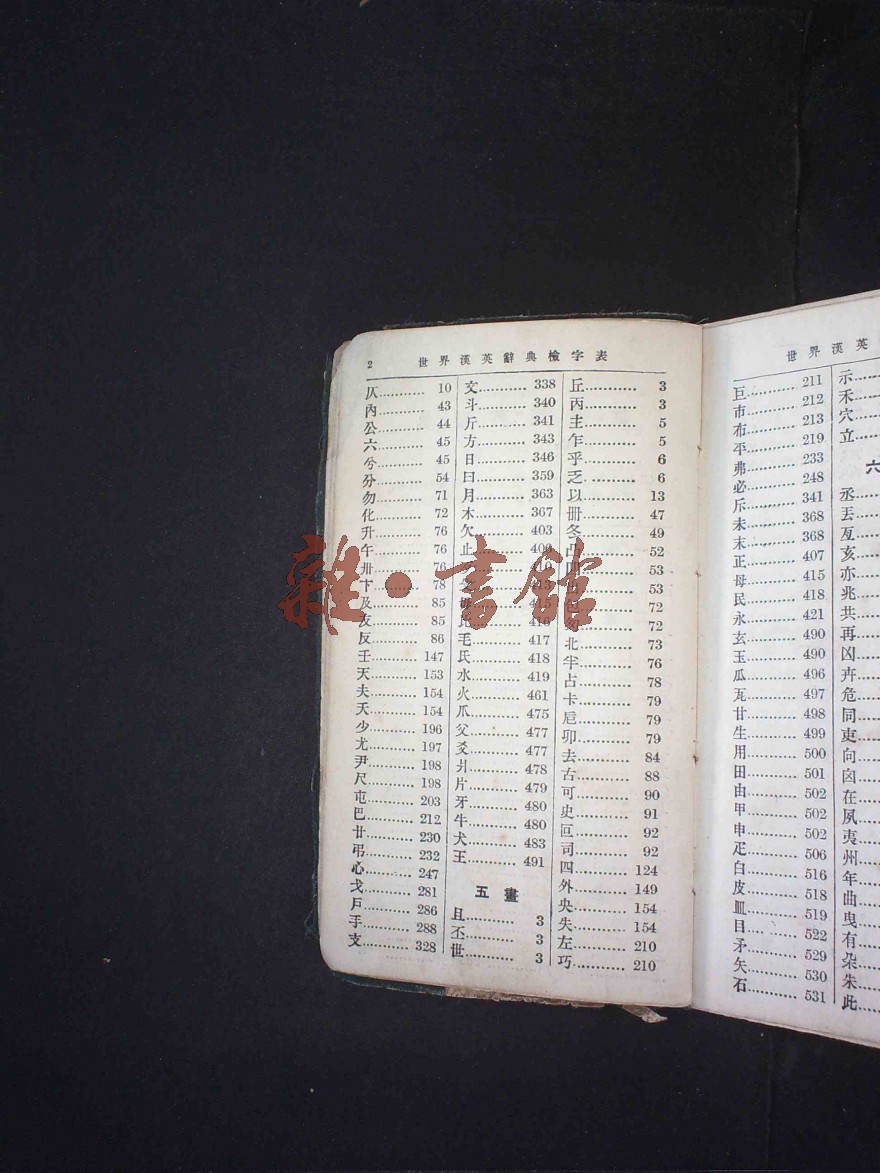 2 世界漢英辭典檢字表
仄………… 10
內………… 43
公………… 44
六………… 45
兮………… 45
分………… 54
勿………… 71
化………… 72
升………… 76
午………… 76
卅………… 76
卞………… 78
及………… 85
友………… 85
反………… 86
壬………… 147
天………… 153
夫………… 154
夭………… 154
少………… 196
尤………… 197
尹………… 198
尺………… 198
屯………… 203
巴………… 212
廿………… 230
弔………… 232
心………… 247
戈………… 281
戶………… 286
手………… 288
支………… 328
文………… 338
斗………… 340
斤………… 341
方………… 343
日………… 346
曰………… 359
月………… 363
木………… 367
欠………… 403
止…………
毋………… 415
比………… 416
毛………… 417
氏………… 418
水………… 419
火………… 461
爪………… 475
父………… 477
爻………… 477
爿………… 478
片………… 479
牙………… 480
牛………… 480
犬………… 483
王………… 491
五畫
且………… 3
丕………… 3
世………… 3
丘………… 3
丙………… 3
主………… 5
乍………… 5
乎………… 6
乏………… 6
以………… 13
冊………… 47
冬………… 49
凸………… 52
凹………… 53
53
72
72
北………… 73
半………… 76
占………… 78
卡………… 79
卮………… 79
卯………… 79
去………… 84
古………… 88
可………… 90
史………… 91
叵………… 92
司………… 92
四………… 124
外………… 149
央………… 154
失………… 154
左………… 210
巧………… 210
世界漢英
巨………… 211
市………… 212
布………… 213
平………… 219
弗………… 233
必………… 248
斥………… 341
未………… 368
末………… 368
正………… 407
母………… 415
民………… 418
永………… 421
玄………… 490
玉………… 490
瓜………… 496
瓦………… 497
甘………… 498
生………… 499
用………… 500
田………… 501
由………… 502
甲………… 502
申………… 502
疋………… 506
白………… 516
皮………… 518
皿………… 519
目………… 522
矛………… 529
矢………… 530
石………… 531
示
禾
穴
立
六
丞
丟
亙
亥
亦
兆
共
再
凶
卉
危
同
吏
向
囟
在
夙
夷
州
年
曲
曳
有
朵
朱
此
雜·書館